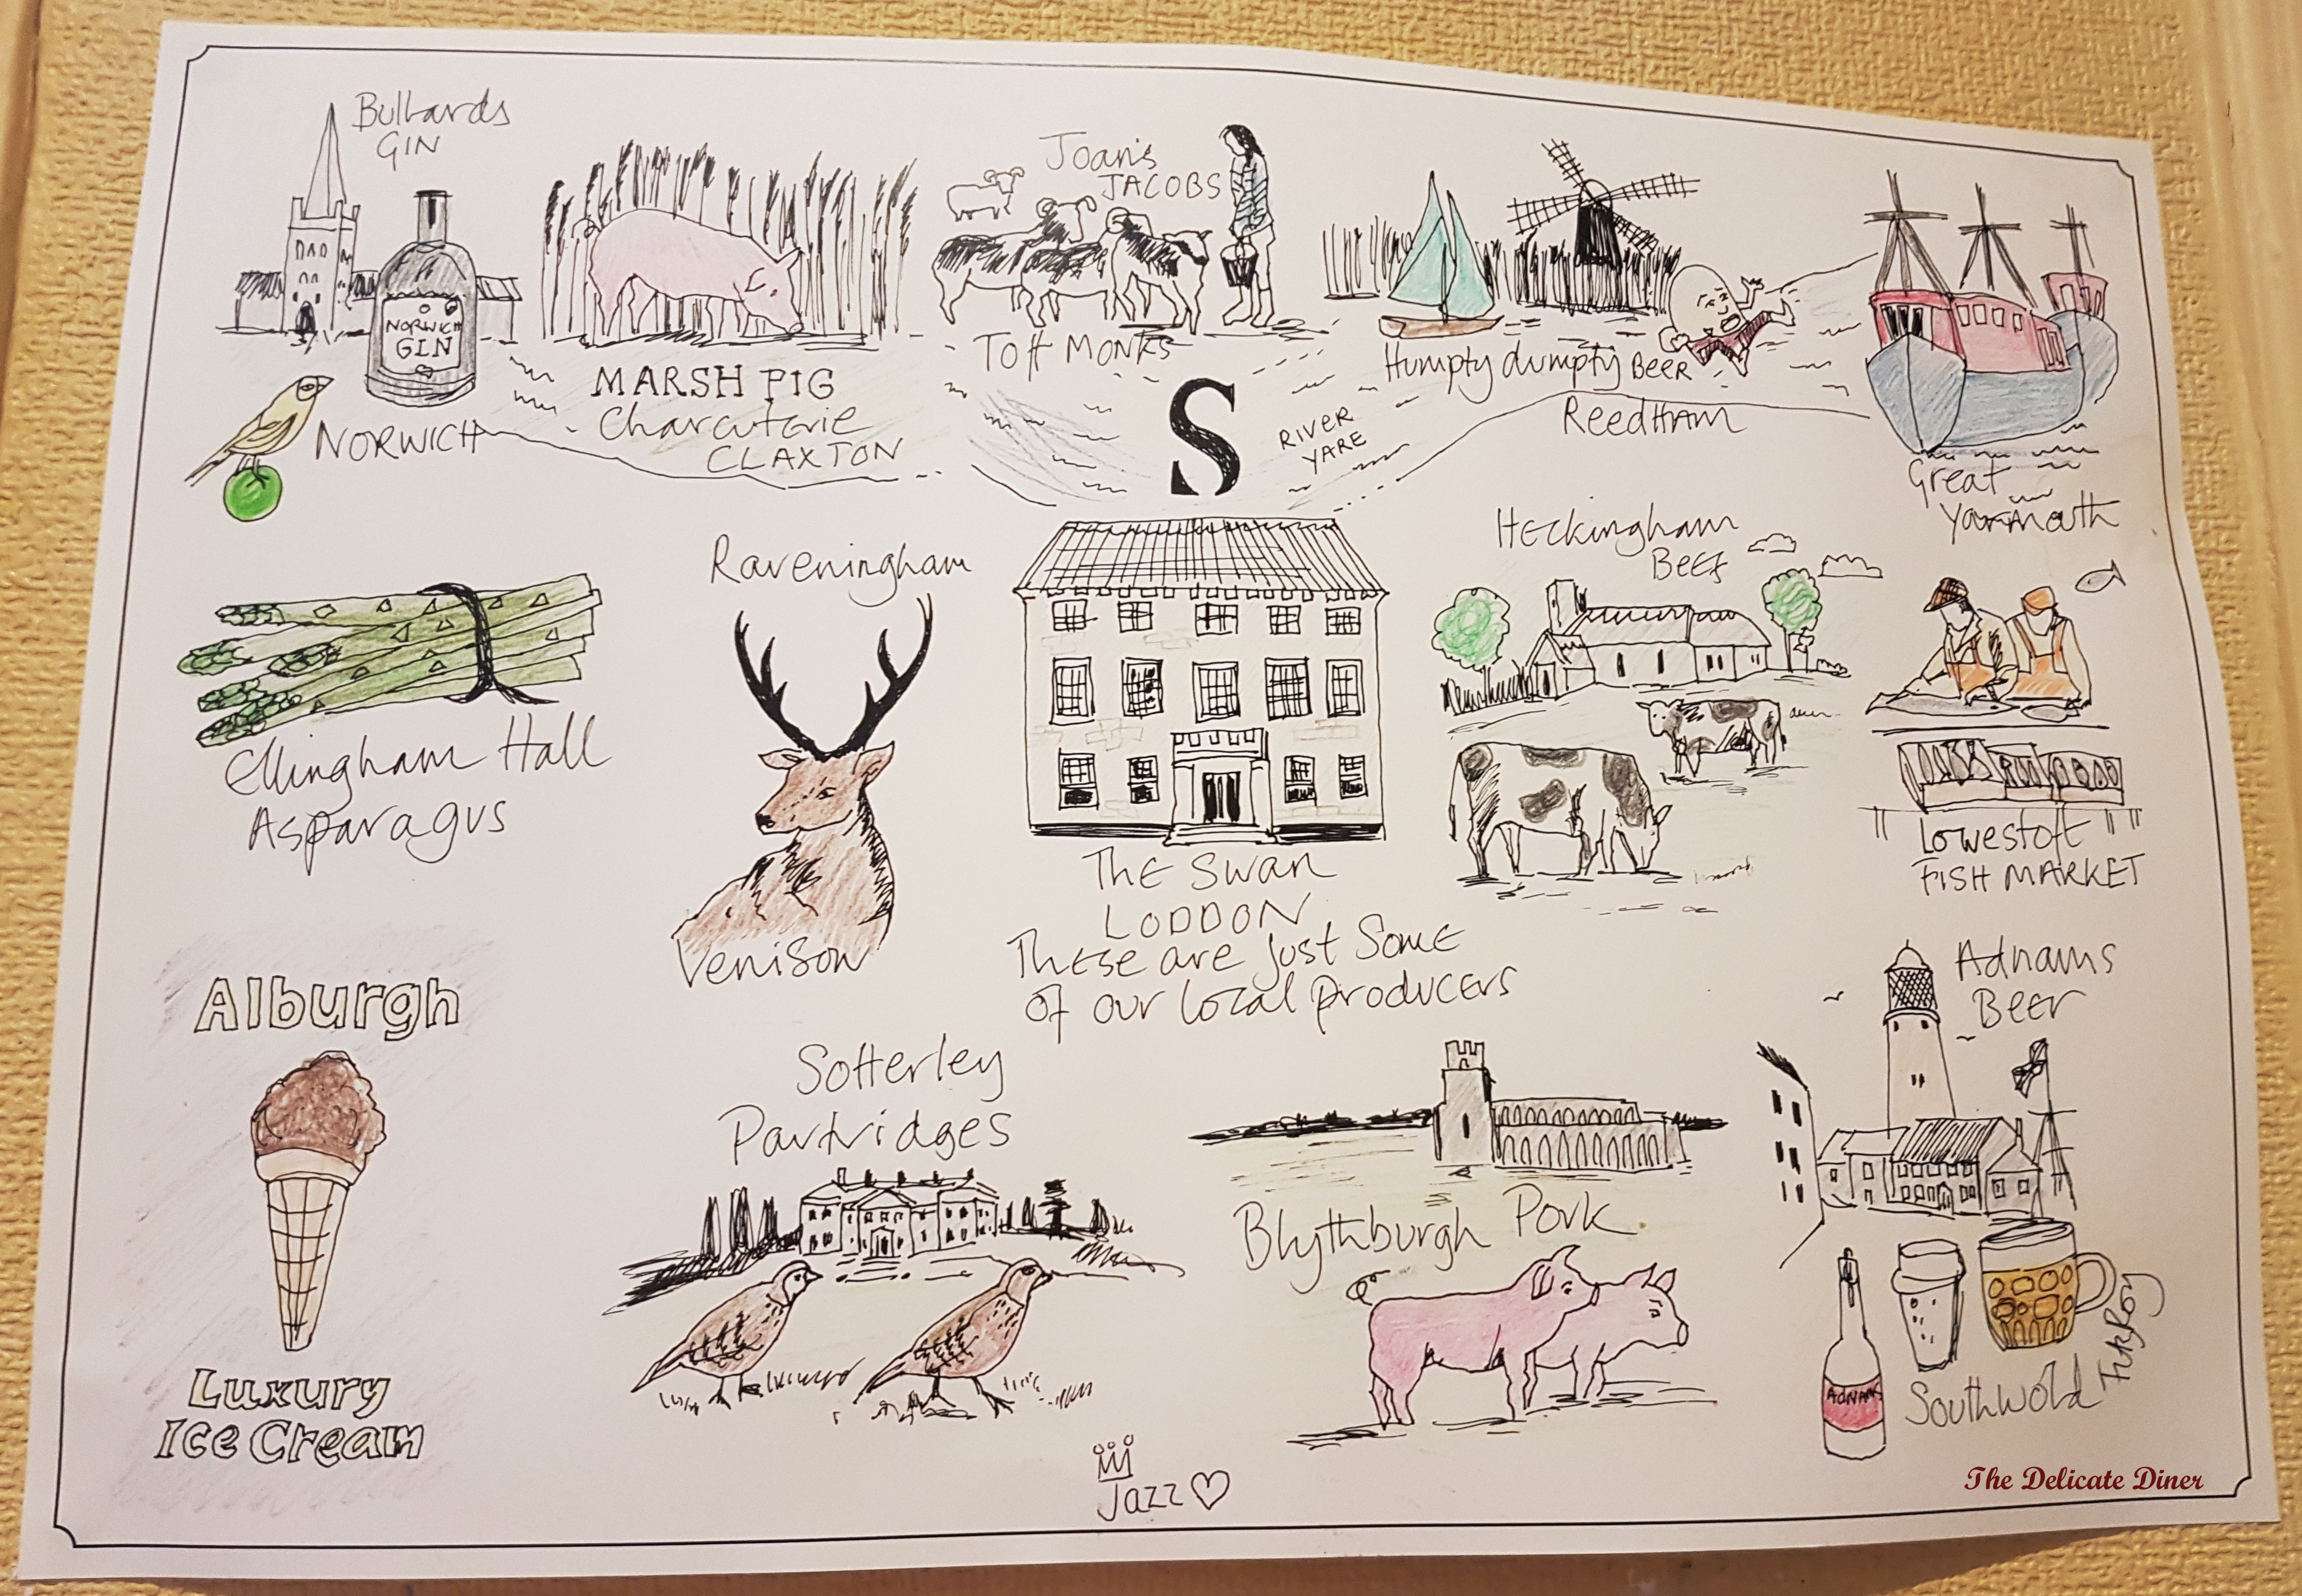 Bullards
GIN
NORWICH
GIN
NORWICH
MARSH PIG
Charcuterie
CLAXTON
Joan's
JACOBS
Toft MONKS
S
RIVER
YARE
Humpty dumpty BEER
Reedham
Great
Yarmouth
Ellingham Hall
Asparagus
Raveningham
Venison
THE Swan
LODDON
These are just Some
of our local producers
Heckingham
Beef
Lowestoft
FISH MARKET
Alburgh
Luxury
Ice Cream
Sotterley
Partridges
Blythburgh Pork
Adnams
Beer
ADNAMS
Southwold
Jazz
The Delicate Diner